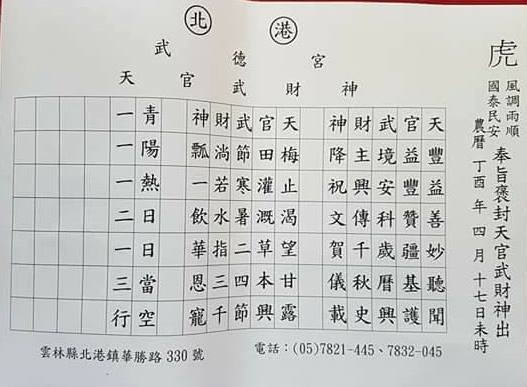 北 港
武德宮
天官武財神
虎
風調雨順
國泰民安
奉旨褒封天官武財神出
農曆 丁酉 年 四 月 十七日未時
天豐益善妙聽聞
官益豐贊疆基護
武境安科歲曆興
財主興傳千秋史
神降祝文賀儀載
天梅止渴望甘露
官田灌溉草本興
武節寒暑二四節
財淌若水指三千
神瓢一飲華恩寵
青陽熱日日當空
一一一二一三行
雲林縣北港鎮華勝路 330 號
電話：(05)7821-445、7832-045